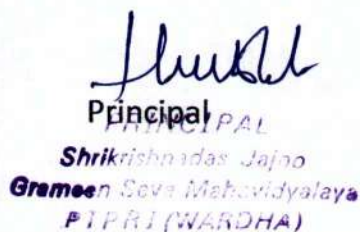 Principal
PRINCIPAL
Shrikrishnadas Jajoo
Grameen Seva Mahavidyalaya
PIPRI (WARDHA)